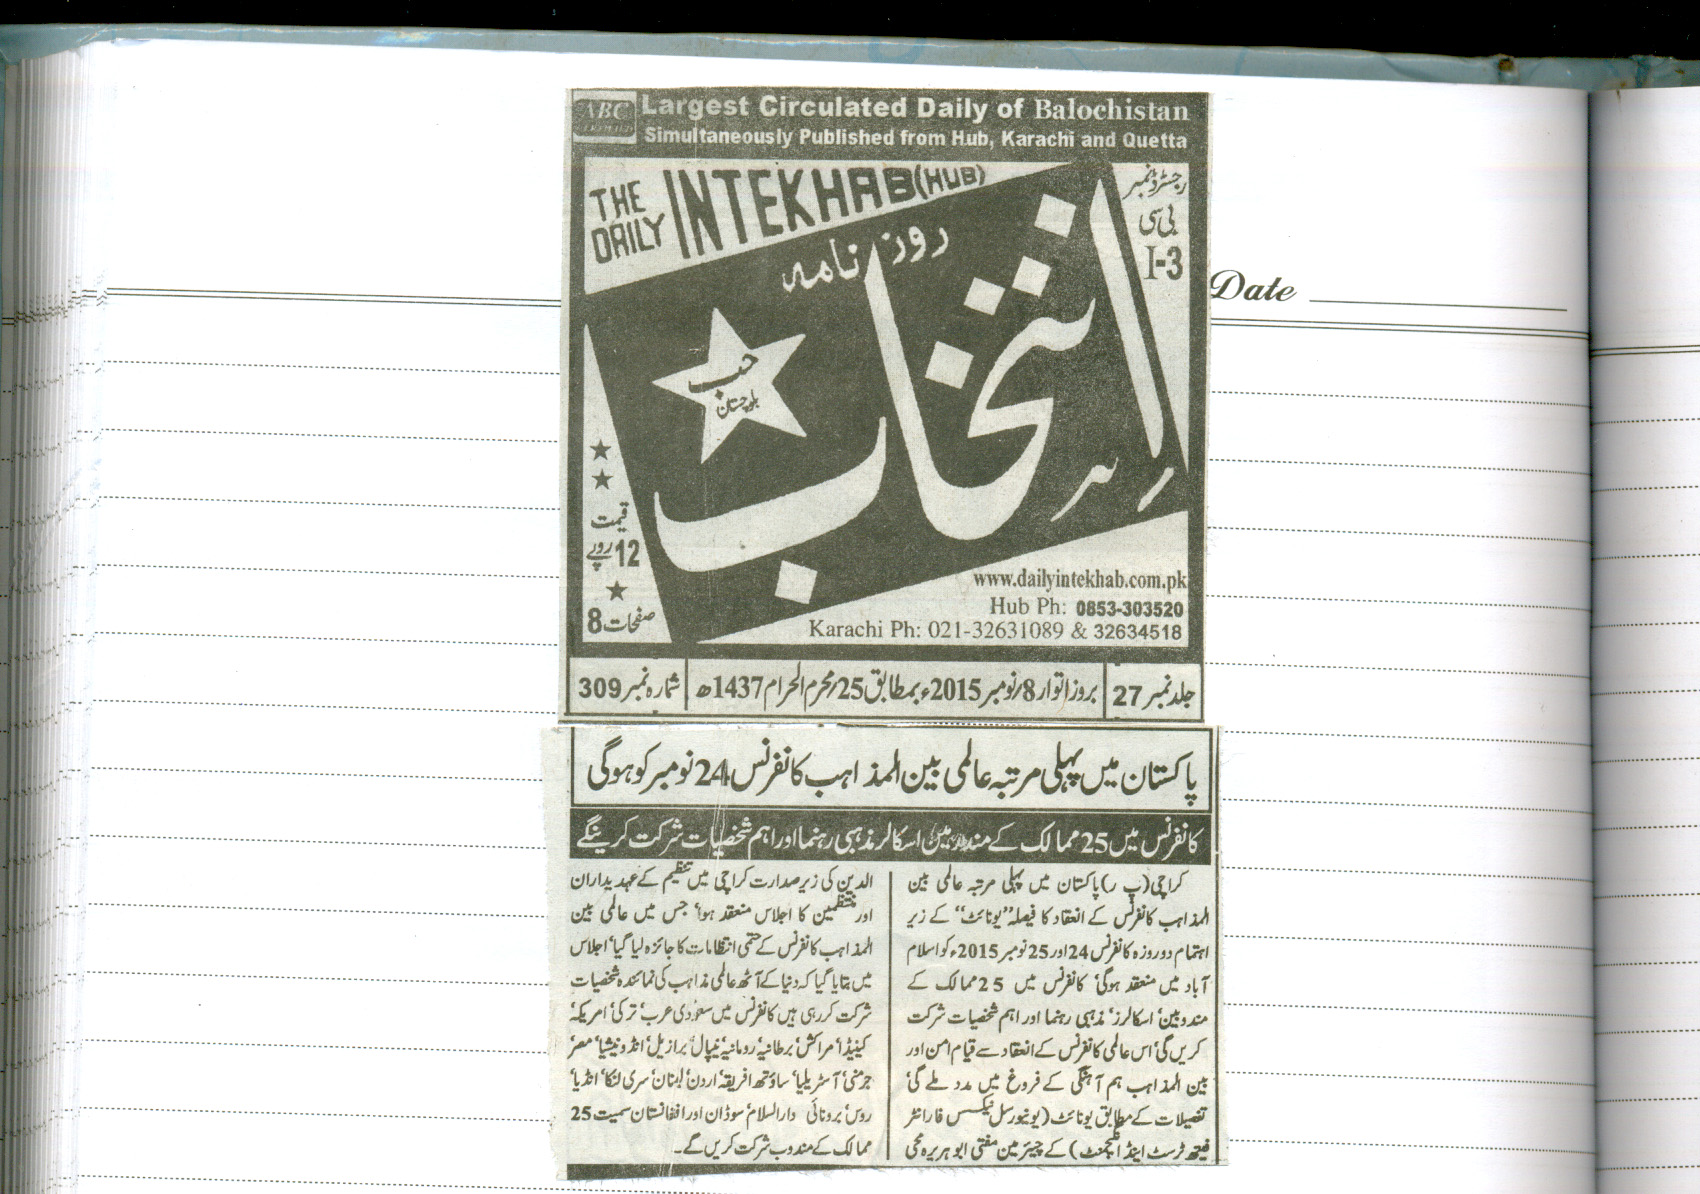 ABC
Largest Circulated Daily of Balochistan
Simultaneously Published from Hub, Karachi and Quetta
THE DAILY INTEKHAB (HUB)
رجسٹرڈ نمبر
بی سی
I-3
روز نامہ
اِنتخاب
حب
بلوچستان
قیمت
12 روپے
صفحات 8
www.dailyintekhab.com.pk
Hub Ph: 0853-303520
Karachi Ph: 021-32631089 & 32634518
جلد نمبر 27
بروز اتوار 8/نومبر 2015ء بمطابق 25/محرم الحرام 1437ھ
شمارہ نمبر 309
Date
پاکستان میں پہلی مرتبہ عالمی بین المذاہب کانفرنس 24 نومبر کو ہوگی
کانفرنس میں 25 ممالک کے مندوبین اسکالر مذہبی رہنما اور اہم شخصیات شرکت کرینگے
کراچی (پ ر) پاکستان میں پہلی مرتبہ عالمی بین
المذاہب کانفرنس کے انعقاد کا فیصلہ ”یونائٹ“ کے زیر
اہتمام دو روزہ کانفرنس 24 اور 25 نومبر 2015ء کو اسلام
آباد میں منعقد ہوگی‘ کانفرنس میں 25 ممالک کے
مندوبین‘ اسکالرز‘ مذہبی رہنما اور اہم شخصیات شرکت
کریں گی‘ اس عالمی کانفرنس کے انعقاد سے قیام امن اور
بین المذاہب ہم آہنگی کے فروغ میں مدد ملے گی‘
تفصیلات کے مطابق یونائٹ (یونیورسل نیکسس فار انٹر
فیتھ ٹرسٹ اینڈ انگیجمنٹ) کے چیئرمین مفتی ابو ہریرہ محی
الدین کی زیر صدارت کراچی میں تنظیم کے عہدیداران
اور منتظمین کا اجلاس منعقد ہوا‘ جس میں عالمی بین
المذاہب کانفرنس کے حتمی انتظامات کا جائزہ لیا گیا‘ اجلاس
میں بتایا گیا کہ دنیا کے آٹھ عالمی مذاہب کی نمائندہ شخصیات
شرکت کررہی ہیں کانفرنس میں سعودی عرب‘ ترکی‘ امریکہ‘
کینیڈا‘ مراکش‘ برطانیہ‘ رومانیہ‘ نیپال‘ برازیل‘ انڈونیشیا‘ مصر‘
جرمنی‘ آسٹریلیا‘ ساؤتھ افریقہ‘ اردن‘ لبنان‘ سری لنکا‘ انڈیا‘
روس‘ برونائی دارالسلام‘ سوڈان اور افغانستان سمیت 25
ممالک کے مندوب شرکت کریں گے۔